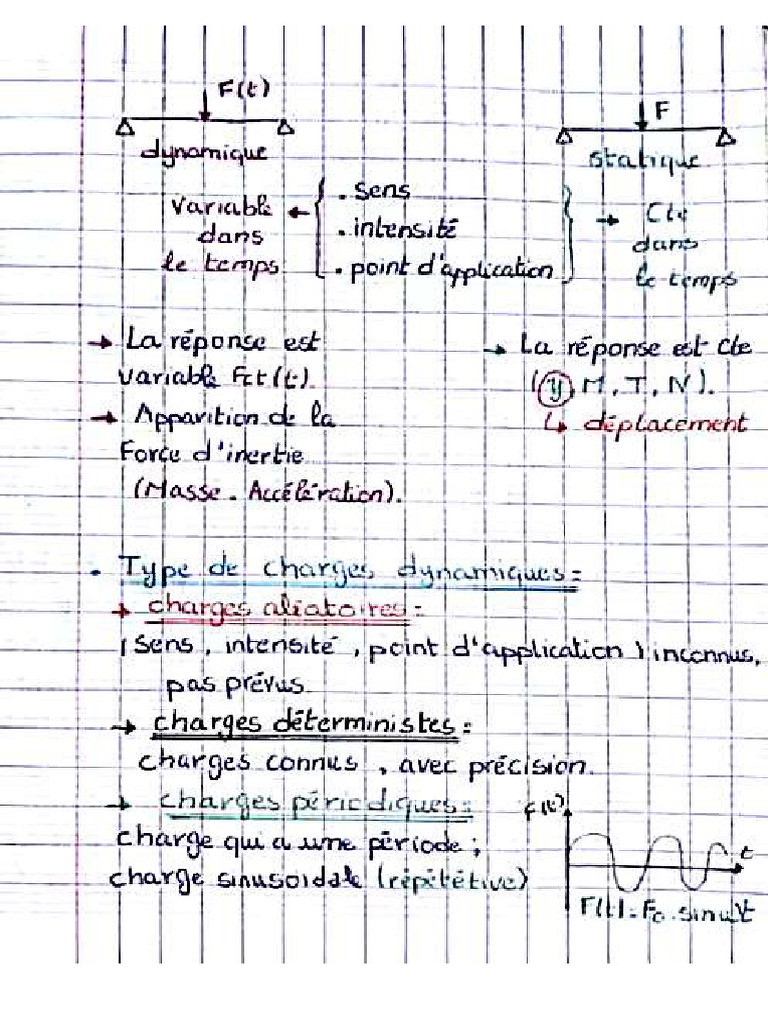 F(t)
F
dynamique
statique
variable
dans
le temps
. sens
. intensité
. point d'application
Cte
dans
le temps
→ La réponse est
variable Fct(t).
→ Apparition de la
Force d'inertie
(Masse . Accélération).
→ La réponse est cte
(y, M, T, N).
↳ déplacement
. Type de charges dynamiques :
→ charges aléatoires :
(sens, intensité, point d'application) inconnus,
pas prévus
→ charges déterministes :
charges connus, avec précision.
→ charges périodiques :
charge qui a une période ;
charge sinusoidale (répététive)
F(t)
t
F(t) = F0 . sin wt